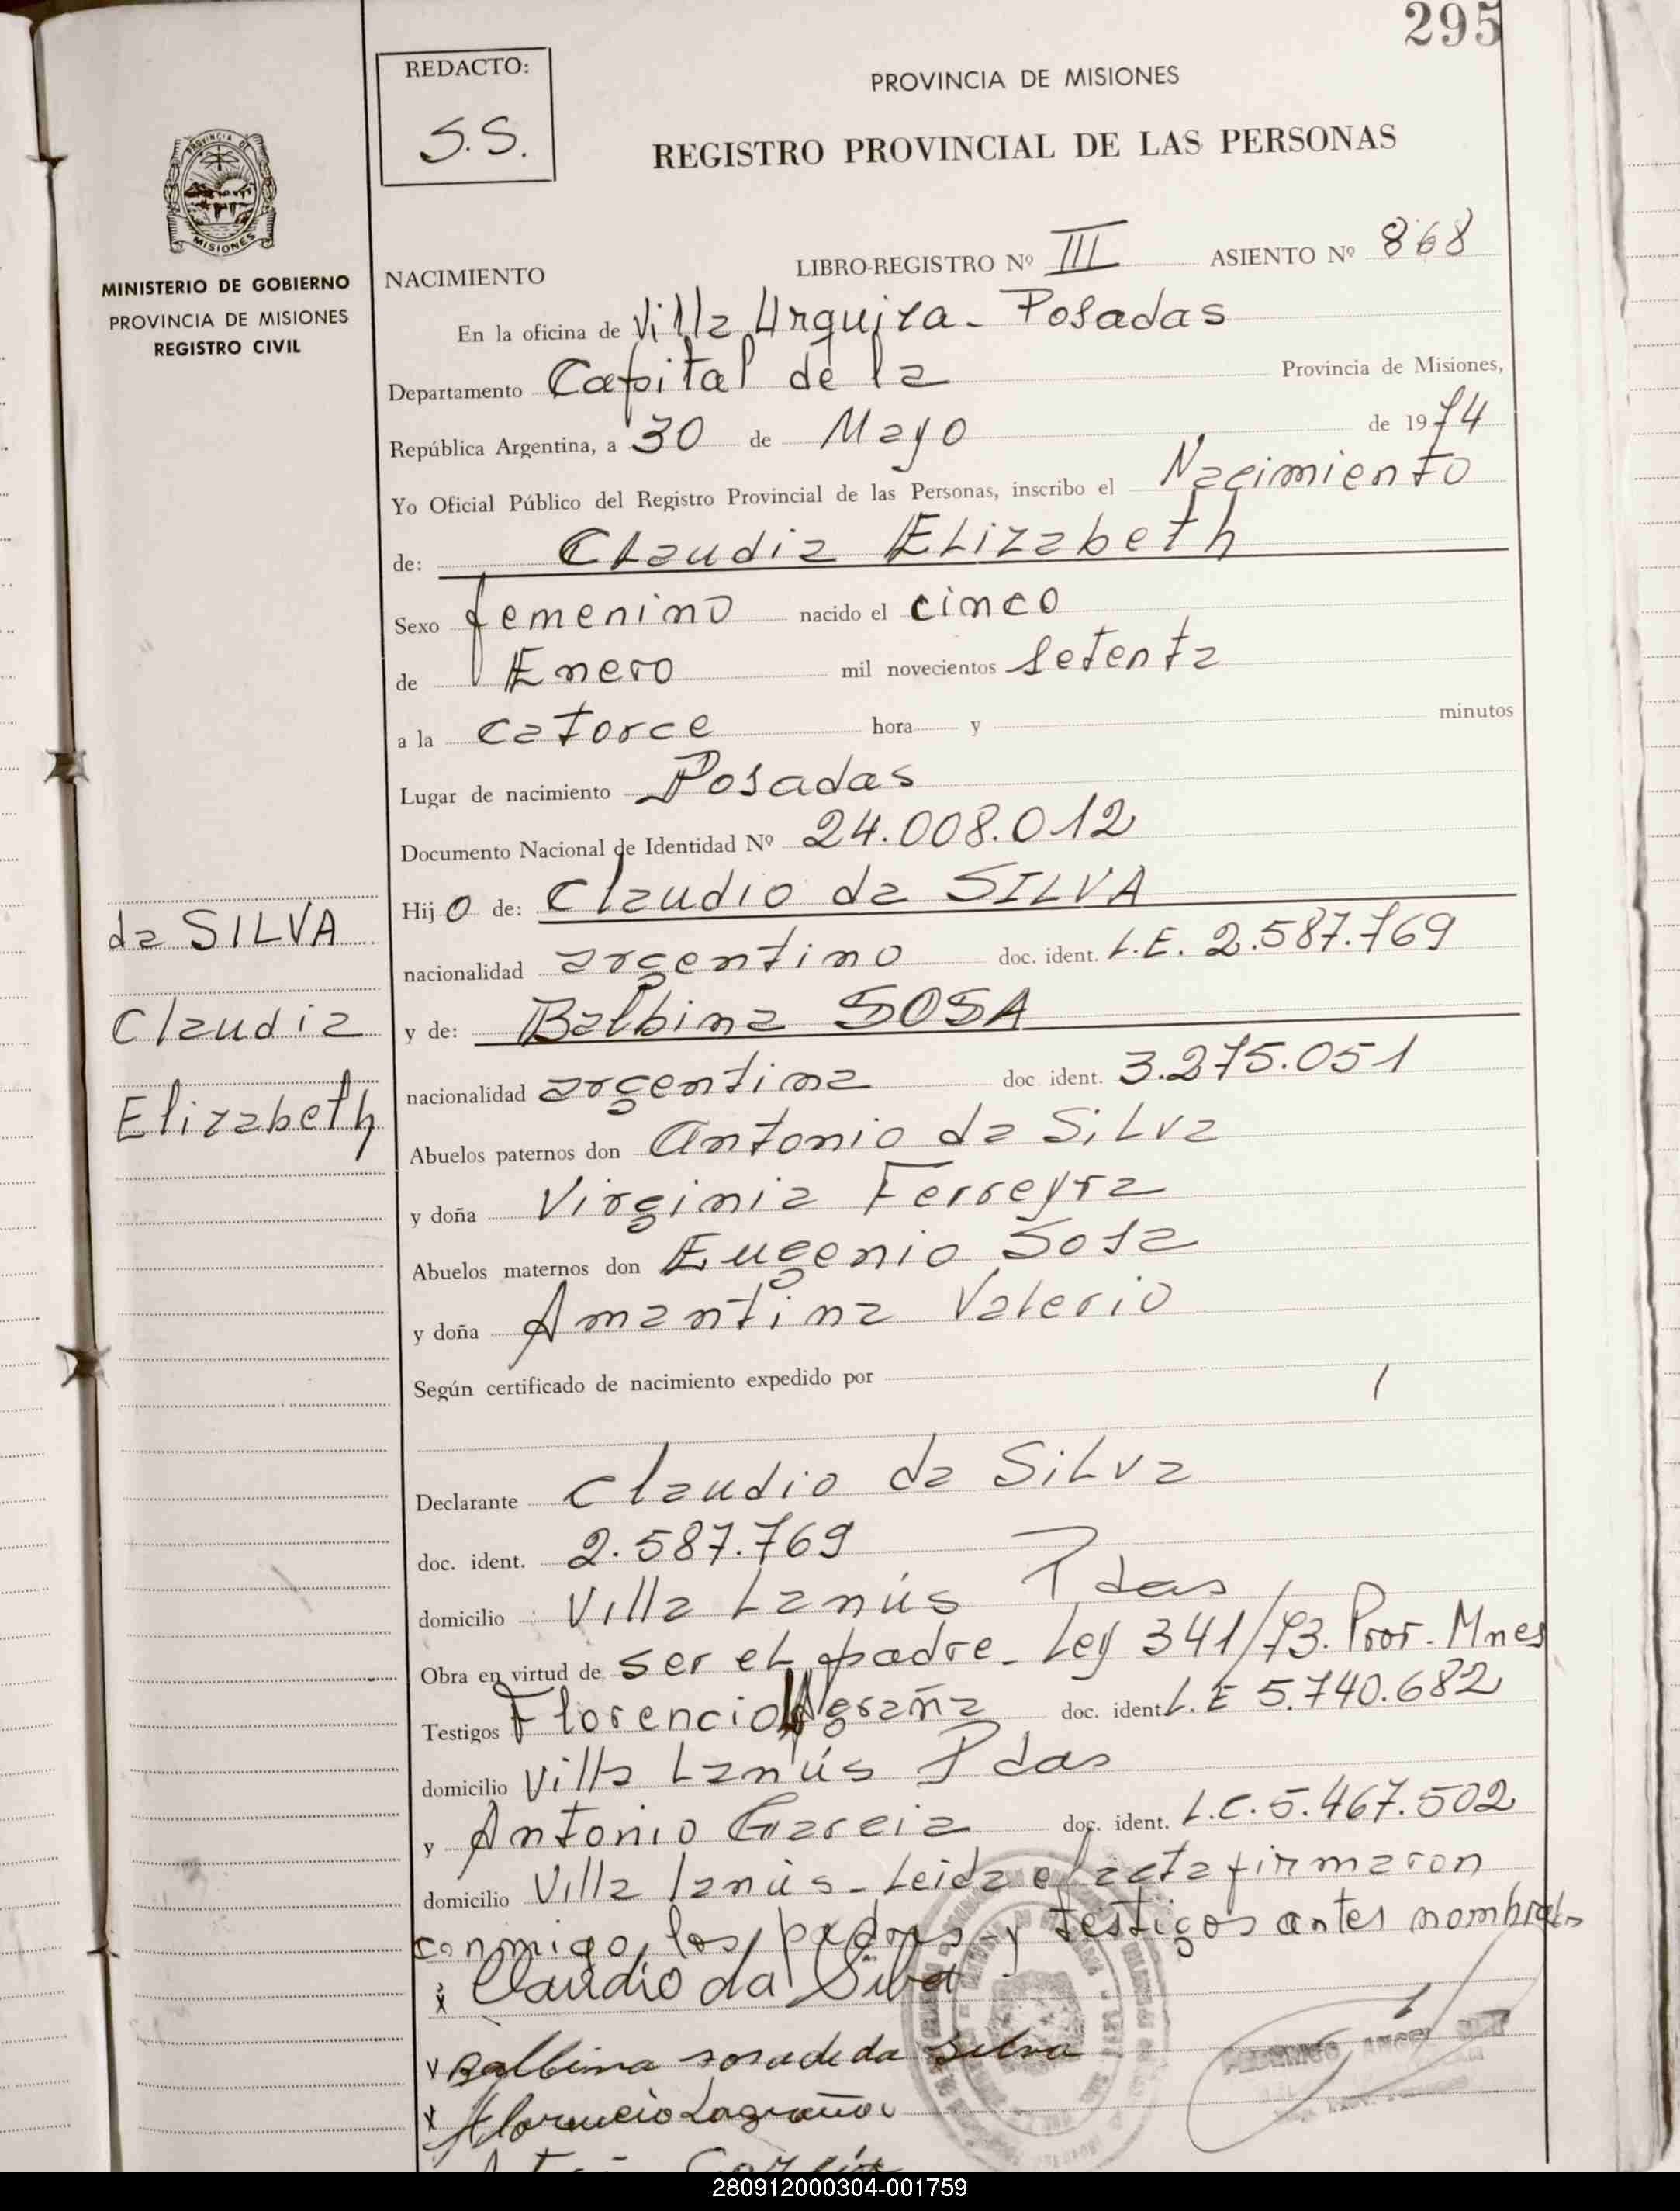 295
REDACTO:
S.S.
PROVINCIA DE MISIONES
REGISTRO PROVINCIAL DE LAS PERSONAS
PROVINCIA DE
MISIONES
MINISTERIO DE GOBIERNO
PROVINCIA DE MISIONES
REGISTRO CIVIL
NACIMIENTO LIBRO-REGISTRO Nº III ASIENTO Nº 868
En la oficina de Villa Urquiza - Posadas
Departamento Capital de la Provincia de Misiones,
República Argentina, a 30 de Mayo de 1974
Yo Oficial Público del Registro Provincial de las Personas, inscribo el Nacimiento
de: Claudia Elizabeth
Sexo femenino nacido el cinco
de Enero mil novecientos setenta
a la catorce hora y minutos
Lugar de nacimiento Posadas
Documento Nacional de Identidad Nº 24.008.012
Hijo de: Claudio da SILVA
nacionalidad argentino doc. ident. L.E. 2.587.769
y de: Balbina SOSA
nacionalidad argentina doc ident. 3.275.051
Abuelos paternos don Antonio da Silva
y doña Virginia Ferreyra
Abuelos maternos don Eugenio Sosa
y doña Amantina Valerio
Según certificado de nacimiento expedido por
Declarante Claudio da Silva
doc. ident. 2.587.769
domicilio Villa Lanús Pdas
Obra en virtud de ser el padre - Ley 341/73. Pror. Mnes
Testigos Florencio doc. ident L.E 5.740.682
domicilio Villa Lanús Pdas
y Antonio Garcia doc. ident. L.C. 5.467.502
domicilio Villa Lanús - Leida el acta firmaron
conmigo, los padres y testigos antes nombrados
x Claudio da Silva
x Balbina sosa de da Silva
x Florencio Lagraña
da SILVA
Claudia
Elizabeth
280912000304-001759